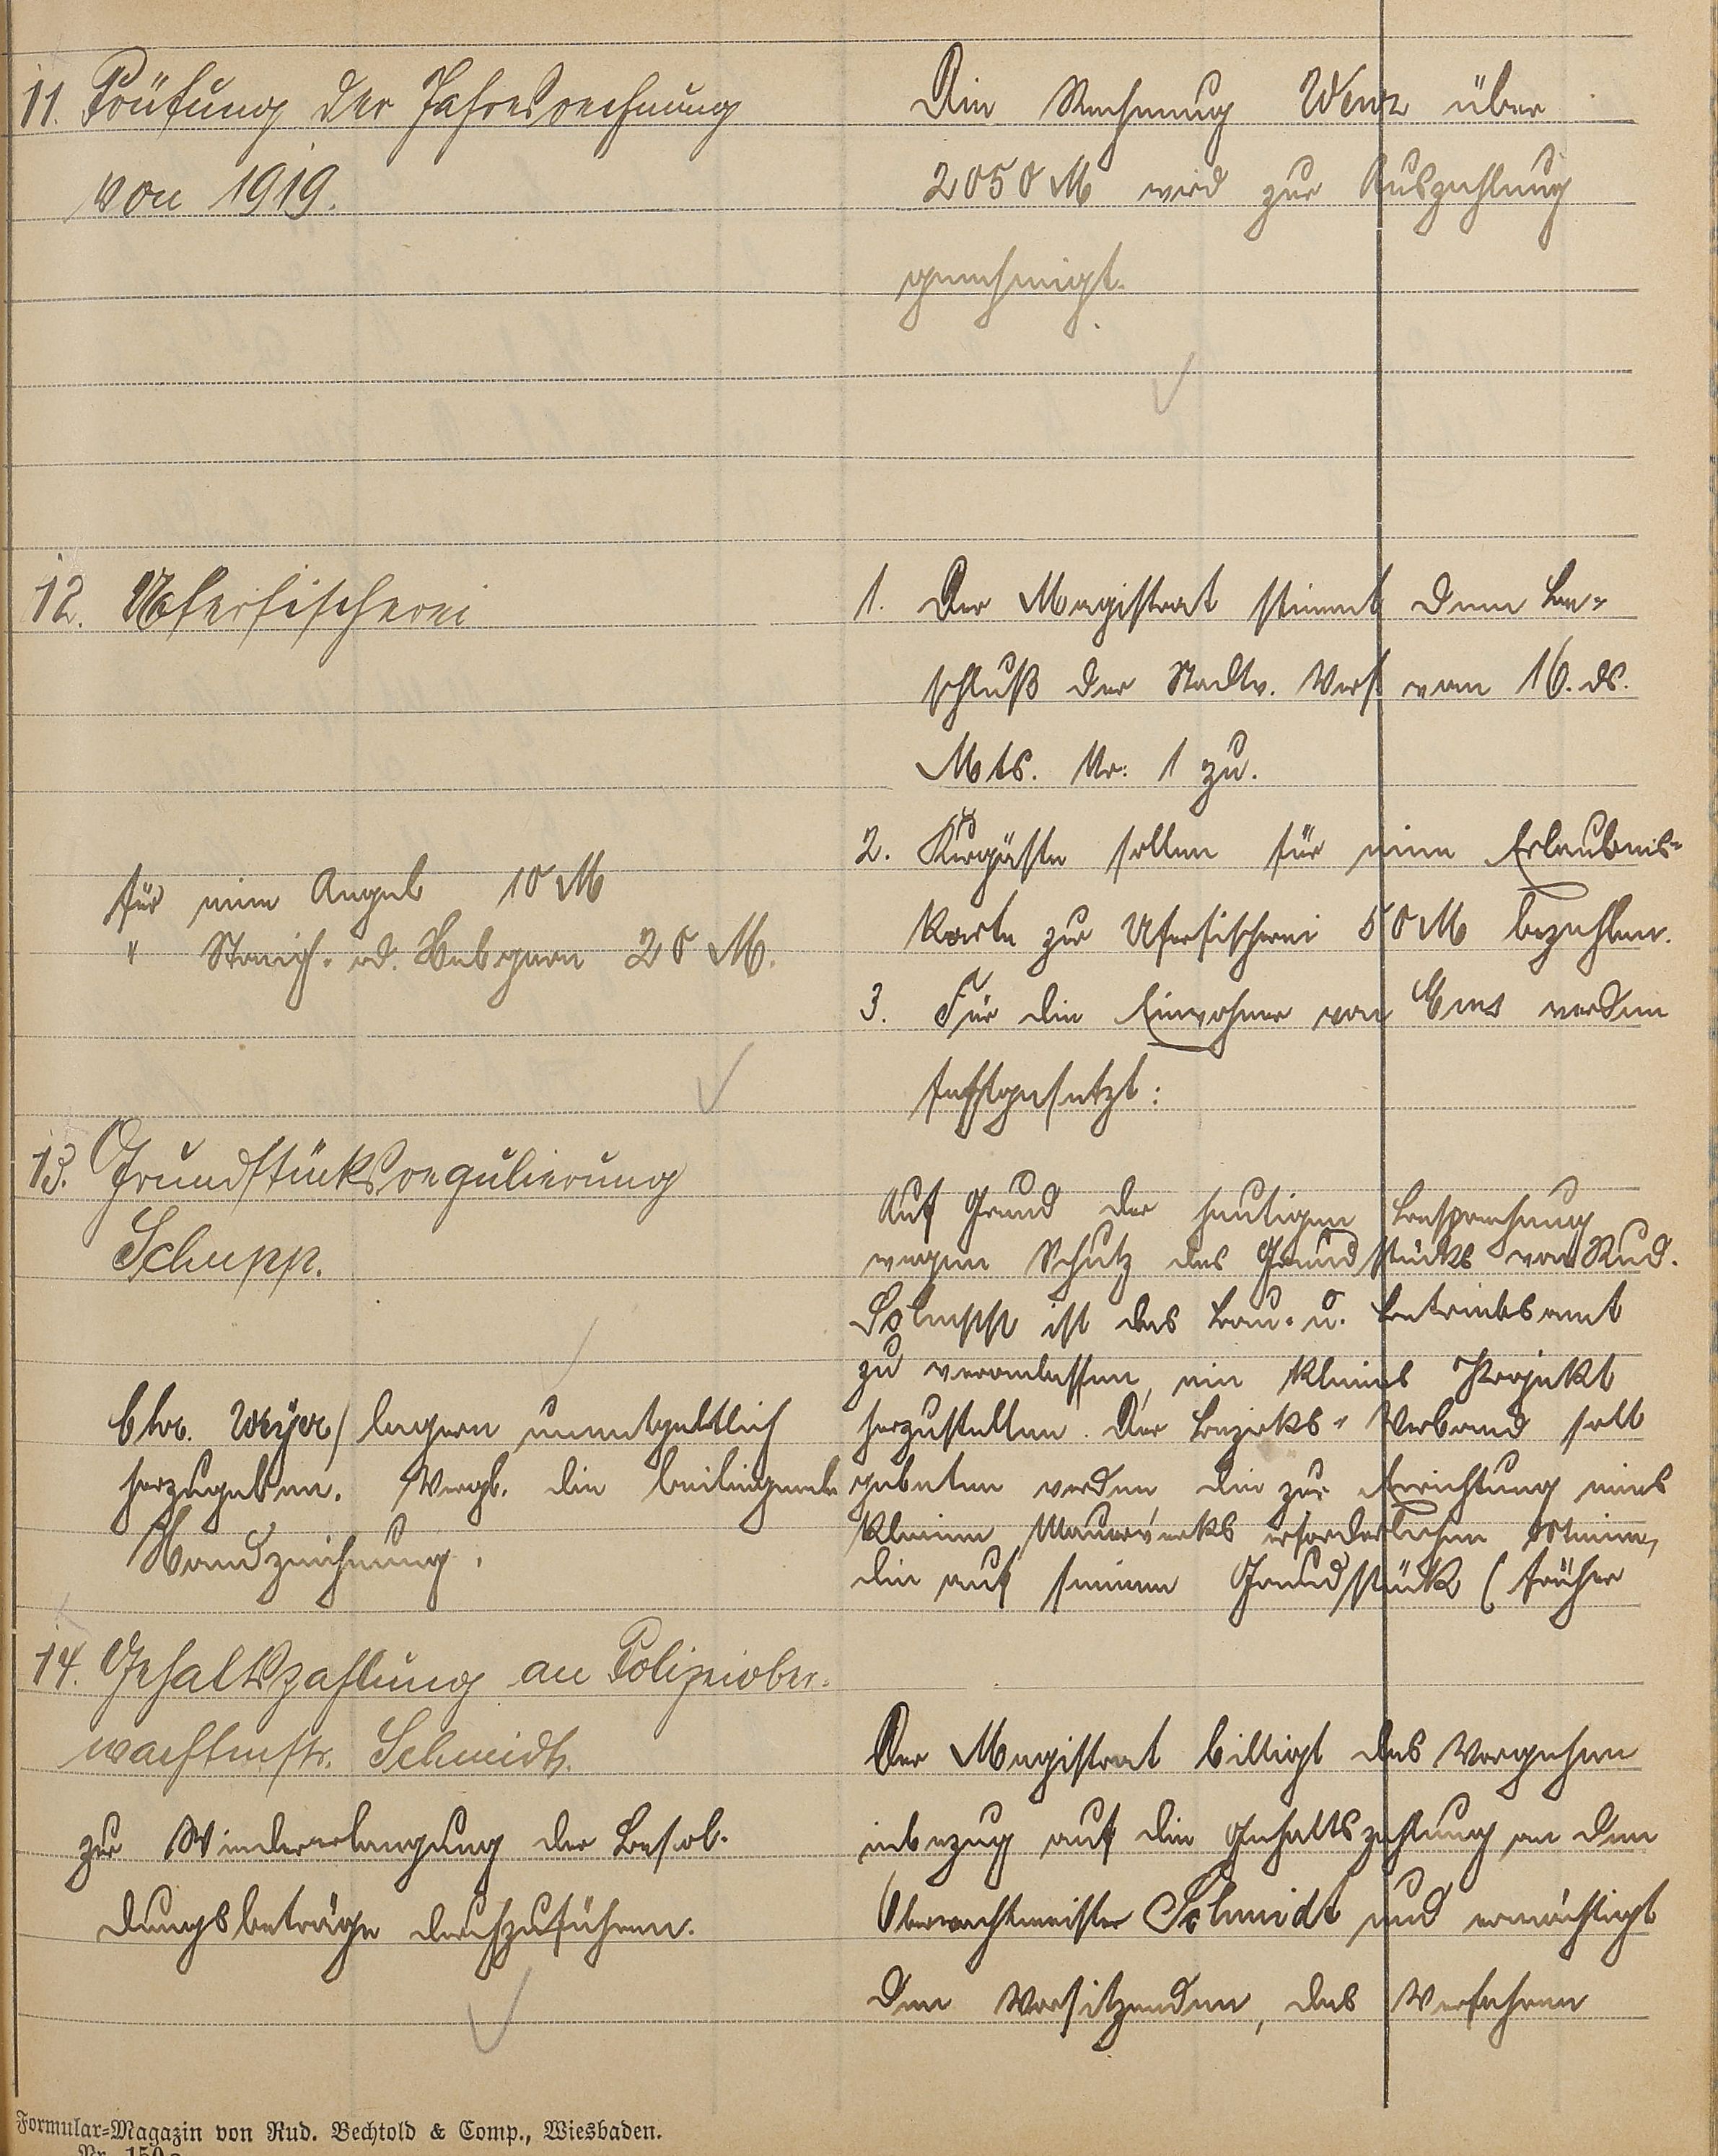 11. Prüfung der Jahresrechnung
von 1919.
Die Rechnung Wenz über
2050 M wird zur Auszahlung
genehmigt.
12. Uferfischerei
1. Der Magistrat stimmt dem Be-
schluß der Stadtv. Vers. vom 16. ds.
Mts. Nr: 1 zu.
2. Kurgäste sollen für eine Erlaubnis-
karte zur Uferfischerei 50 M bezahlen.
3. Für die Einwohner von Ems werden
festgesetzt:
für eine Angel 10 M
" Streich- od. Hebgarn 20 M.
13. Grundstücksregulierung
Schupp.
Auf Grund der heutigen Besprechung
wegen Schutz des Grundstücks von Rud.
Schupp ist das Bau- u. Betriebsamt
zu veranlassen, ein kleines Projekt
herzustellen. Der Bezirks-Verband soll
gebeten werden, die zur Errichtung eines
kleinen Mauerwerks erforderlichen Steine,
die auf seinem Grundstück (früher
Chr. Weyer) lagern unentgeltlich
herzugeben. Vergl. die beiliegende
Handzeichnung.
14. Gehaltszahlung an Polizeiober-
wachtmstr. Schmidt.
Der Magistrat billigt das Vorgehen
inbezug auf die Gehaltszahlung an den
Oberwachtmeister Schmidt und ermächtigt
den Vorsitzenden, das Verfahren
zur Wiedererlangung der Besol-
dungsbeträge durchzuführen.
Formular-Magazin von Rud. Bechtold & Comp., Wiesbaden.